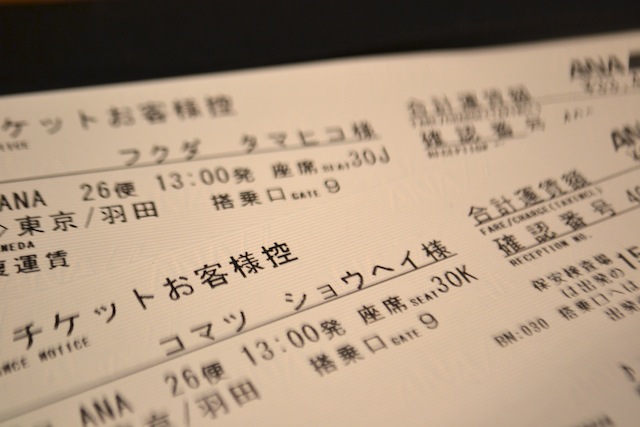 ケットお客様控
フクダ タマヒコ様
ANA 26便 13:00発 座席 SEAT 30J
東京/羽田 搭乗口 GATE 9
運賃
ANA
合計運賃額
確認番号
RECEPTION
チケットお客様控
NOTICE
コマツ ショウヘイ様
ANA 26便 13:00発 座席 SEAT 30K
京/羽田 搭乗口 GATE 9
合計運賃額
FARE/CHARGE(TAX INCL)
確認番号
RECEPTION NO.
保安検査場
は出発の
搭乗口へは
BN:030